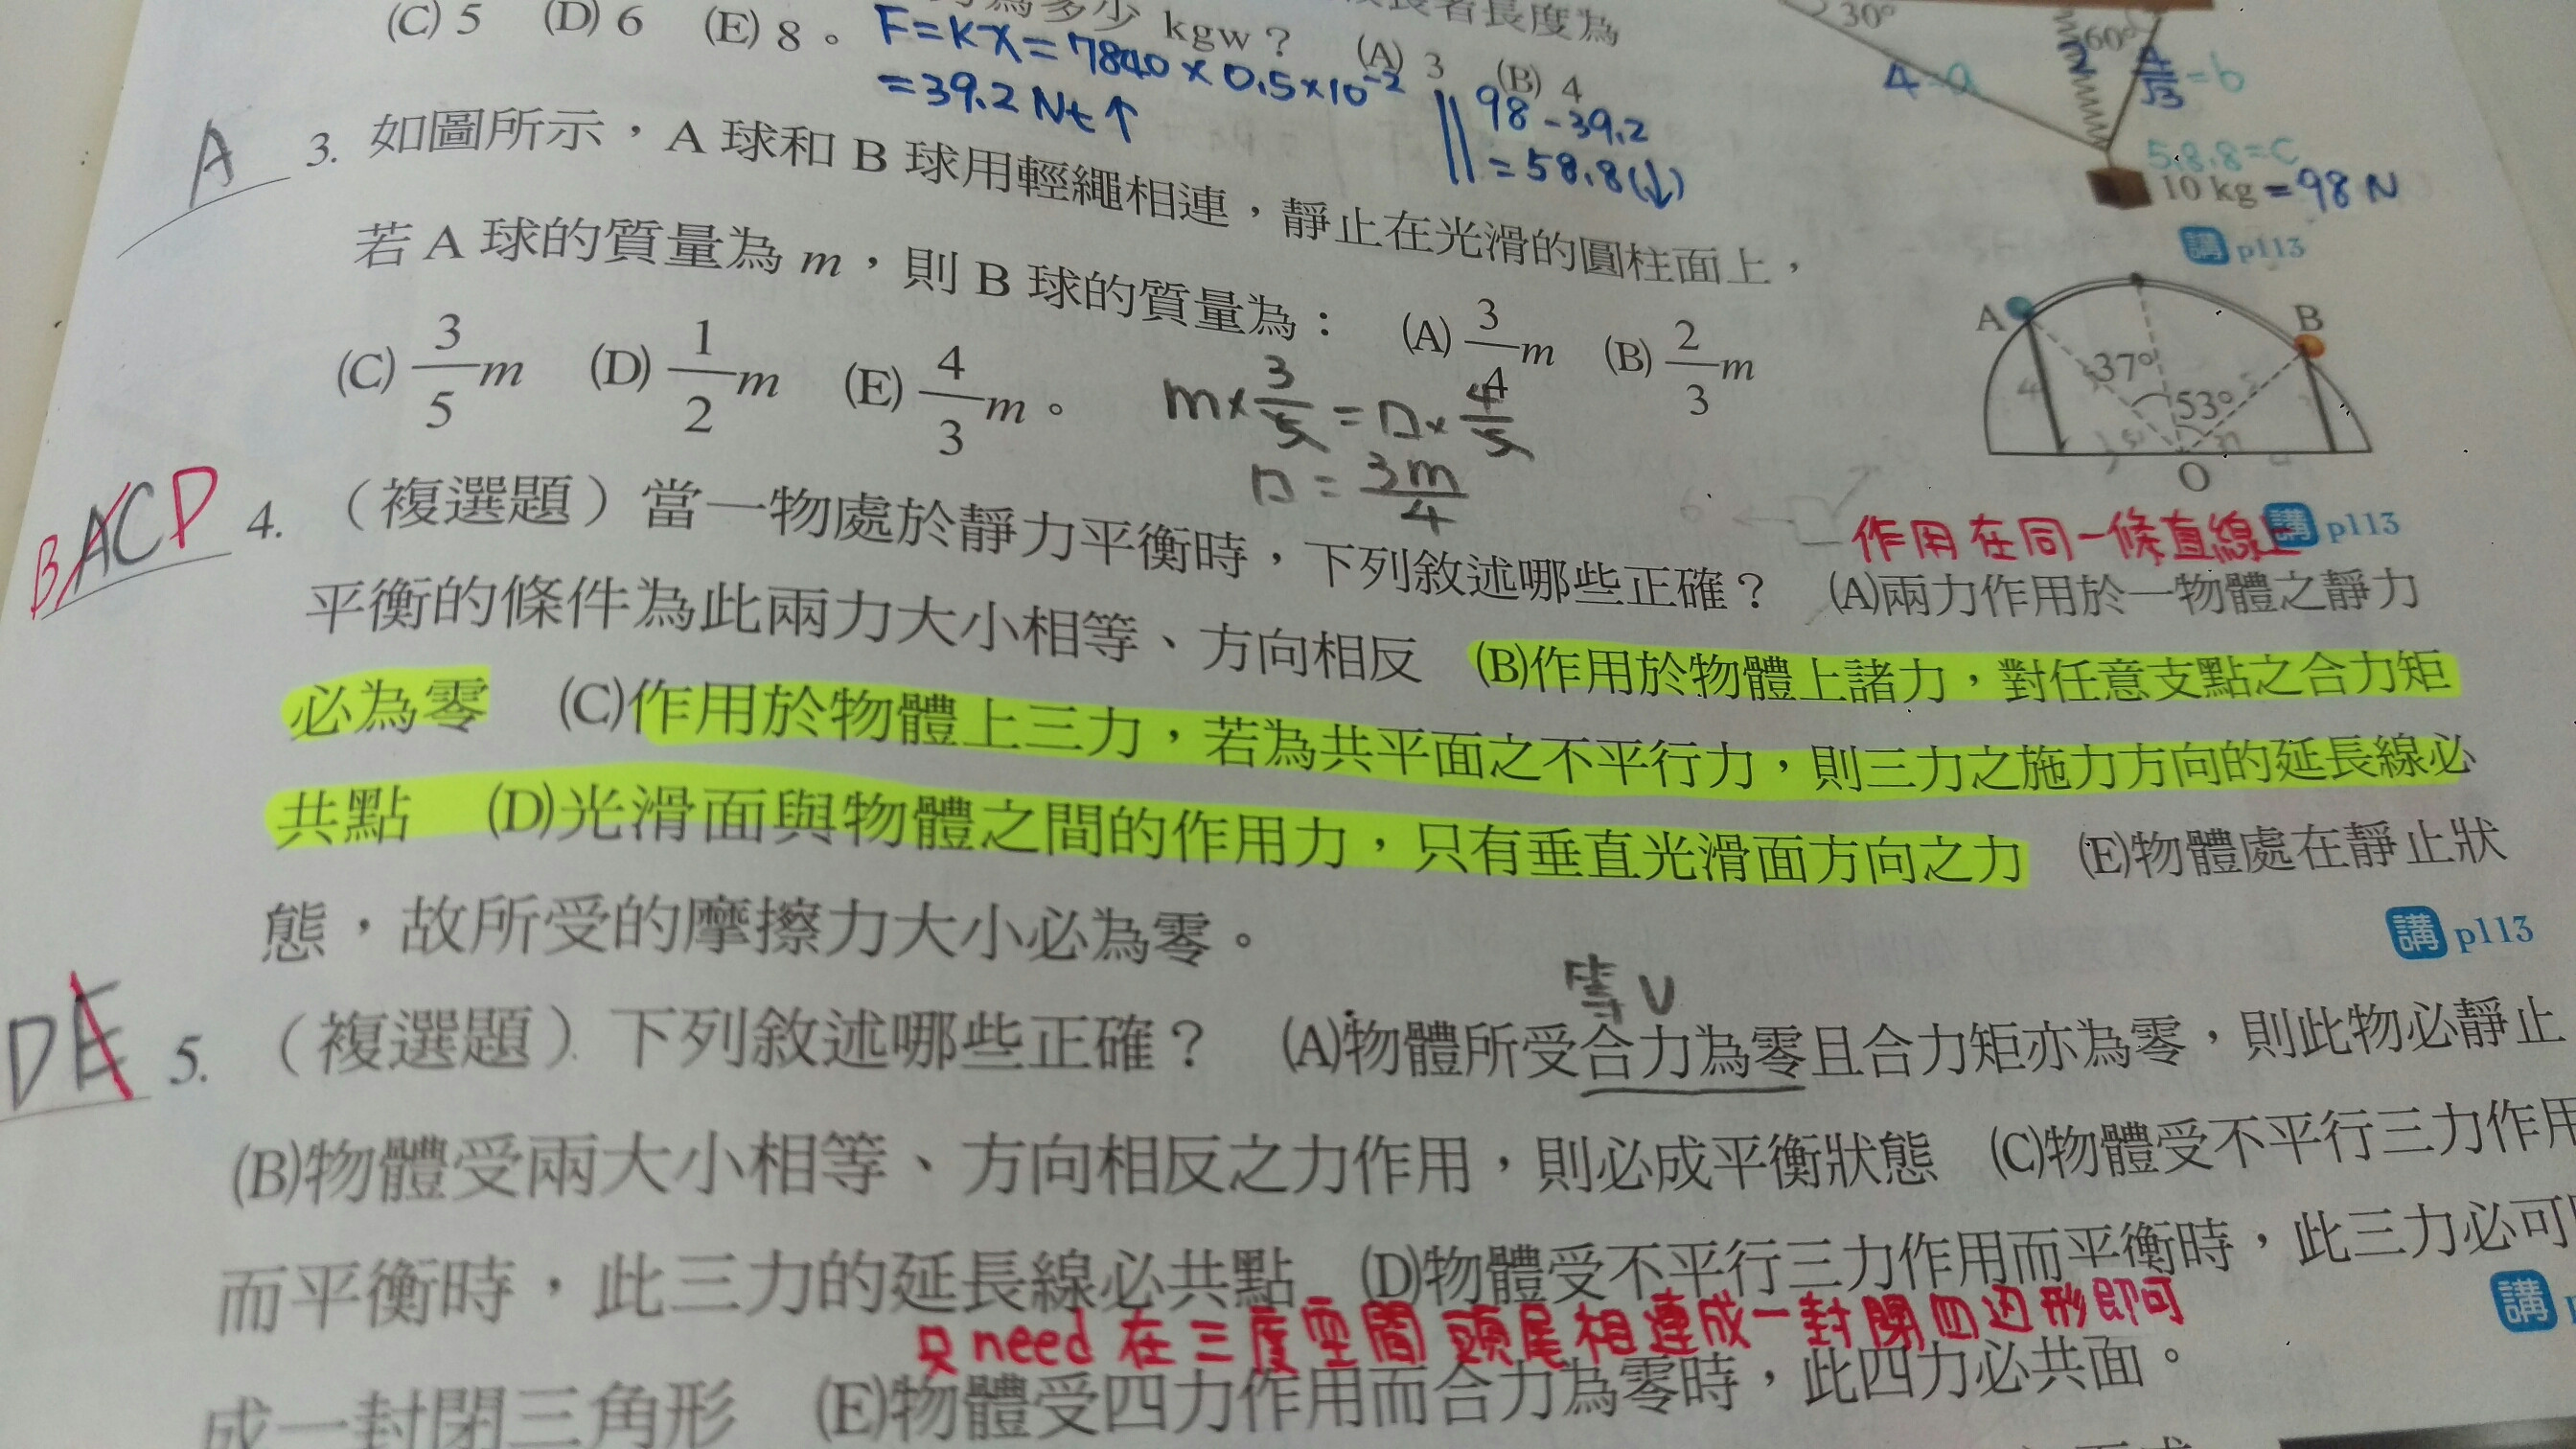 kgw？ (A) 3 (B) 4
(C) 5 (D) 6 (E) 8。
F=Kx=7840×0.5×10⁻²
=39.2 Nt↑
98-39.2
=58.8(↓)
30°
60°
4=a
2
4/√3=b
58.8=c
10 kg=98 N
講 p113
A
3. 如圖所示，A 球和 B 球用輕繩相連，靜止在光滑的圓柱面上，
若 A 球的質量為 m，則 B 球的質量為： (A) 3/4 m (B) 2/3 m
(C) 3/5 m (D) 1/2 m (E) 4/3 m。
m×3/5=□×4/5
□=3m/4
A
B
37°
53°
O
講 p113
作用在同一條直線上
BACD
4. （複選題）當一物處於靜力平衡時，下列敘述哪些正確？ (A)兩力作用於一物體之靜力
平衡的條件為此兩力大小相等、方向相反 (B)作用於物體上諸力，對任意支點之合力矩
必為零 (C)作用於物體上三力，若為共平面之不平行力，則三力之施力方向的延長線必
共點 (D)光滑面與物體之間的作用力，只有垂直光滑面方向之力 (E)物體處在靜止狀
態，故所受的摩擦力大小必為零。
講 p113
等V
DE
5. （複選題）下列敘述哪些正確？ (A)物體所受合力為零且合力矩亦為零，則此物必靜止
(B)物體受兩大小相等、方向相反之力作用，則必成平衡狀態 (C)物體受不平行三力作用
而平衡時，此三力的延長線必共點 (D)物體受不平行三力作用而平衡時，此三力必可
只need在三度空間頭尾相連成一封閉四边形即可
講
成一封閉三角形 (E)物體受四力作用而合力為零時，此四力必共面。